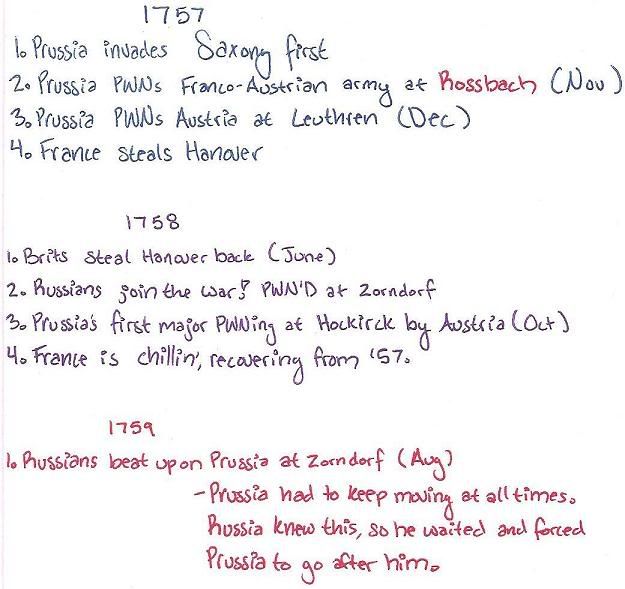 1757
1. Prussia invades Saxony first
2. Prussia PWNs Franco-Austrian army at Rossbach (Nov)
3. Prussia PWNs Austria at Leuthren (Dec)
4. France steals Hanover
1758
1. Brits steal Hanover back (June)
2. Russians join the war! PWN'D at Zorndorf
3. Prussia's first major PWNing at Hockirck by Austria (Oct)
4. France is chillin', recovering from '57.
1759
1. Russians beat upon Prussia at Zorndorf (Aug)
- Prussia had to keep moving at all times.
Russia knew this, so he waited and forced
Prussia to go after him.